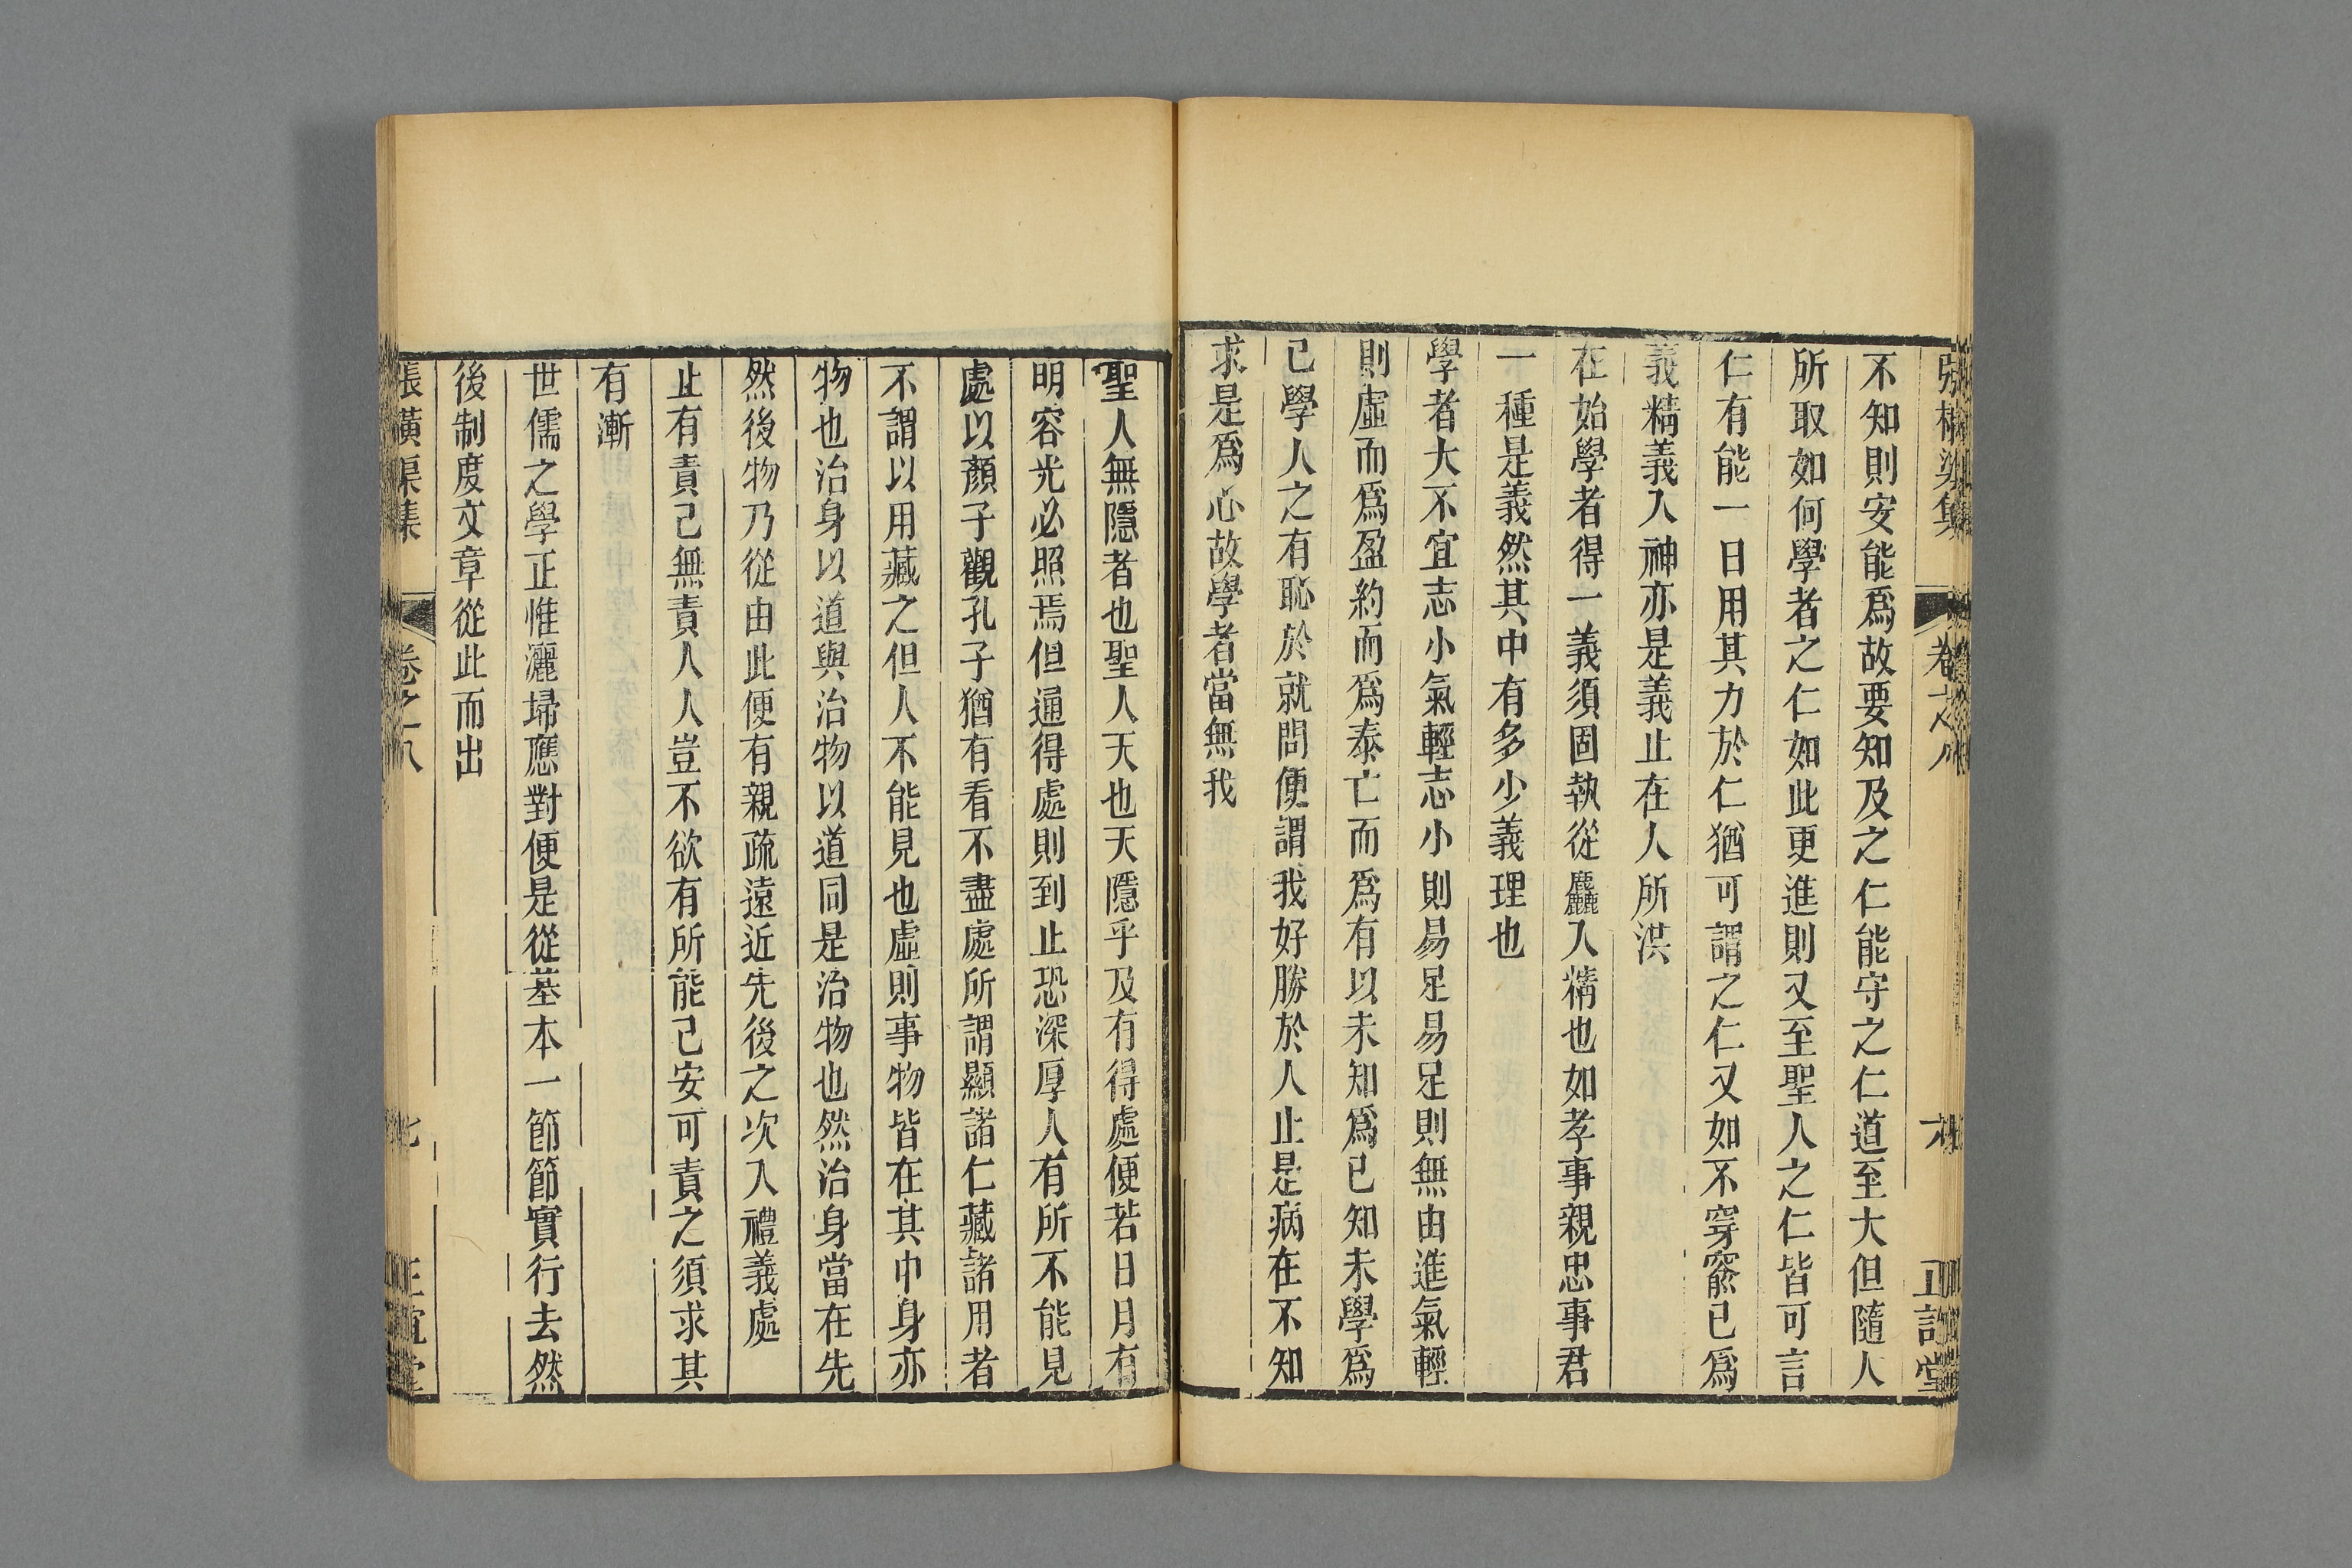 張橫渠集 卷之八 六 正誼堂
不知則安能爲故要知及之仁能守之仁道至大但隨人
所取如何學者之仁如此更進則又至聖人之仁皆可言
仁有能一日用其力於仁猶可謂之仁又如不穿窬已爲
義精義入神亦是義止在人所洪
在始學者得一義須固執從麤入精也如孝事親忠事君
一種是義然其中有多少義理也
學者大不宜志小氣輕志小則易足易足則無由進氣輕
則虛而爲盈約而爲泰亡而爲有以未知爲已知未學爲
已學人之有恥於就問便謂我好勝於人止是病在不知
求是爲心故學者當無我
聖人無隱者也聖人天也天隱乎及有得處便若日月有
明容光必照焉但通得處則到止恐深厚人有所不能見
處以顏子觀孔子猶有看不盡處所謂顯諸仁藏諸用者
不謂以用藏之但人不能見也虛則事物皆在其中身亦
物也治身以道與治物以道同是治物也然治身當在先
然後物乃從由此便有親疏遠近先後之次入禮義處
止有責己無責人人豈不欲有所能己安可責之須求其
有漸
世儒之學正惟灑埽應對便是從基本一節節實行去然
後制度文章從此而出
張橫渠集 卷之八 七 正誼堂